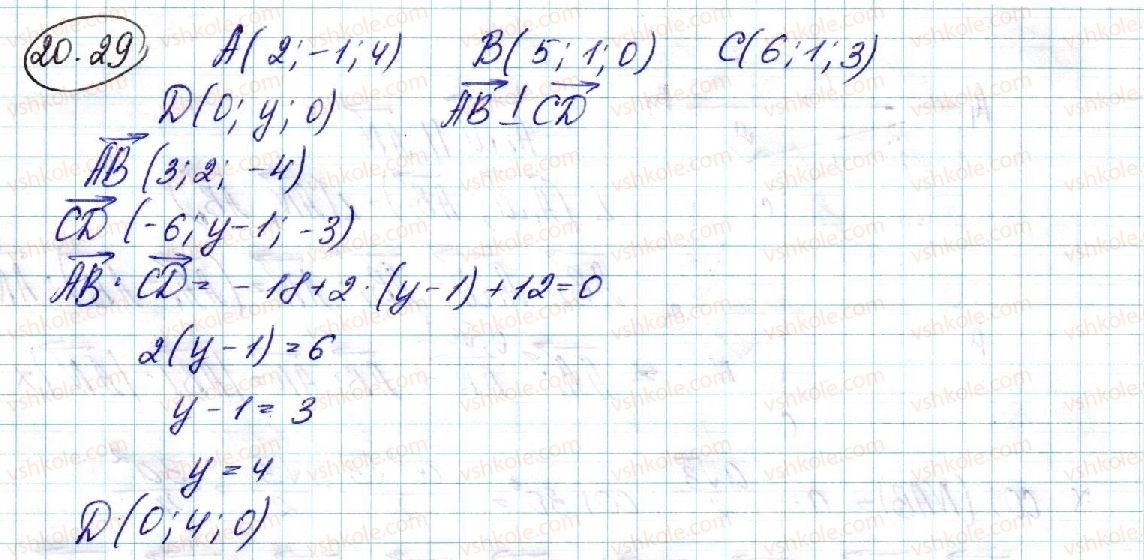 20.29 A(2;-1;4) B(5;1;0) C(6;1;3)
D(0;y;0) AB ⊥ CD
AB (3;2;-4)
CD (-6;y-1;-3)
AB · CD = -18+2·(y-1)+12=0
2(y-1)=6
y-1=3
y=4
D(0;4;0)